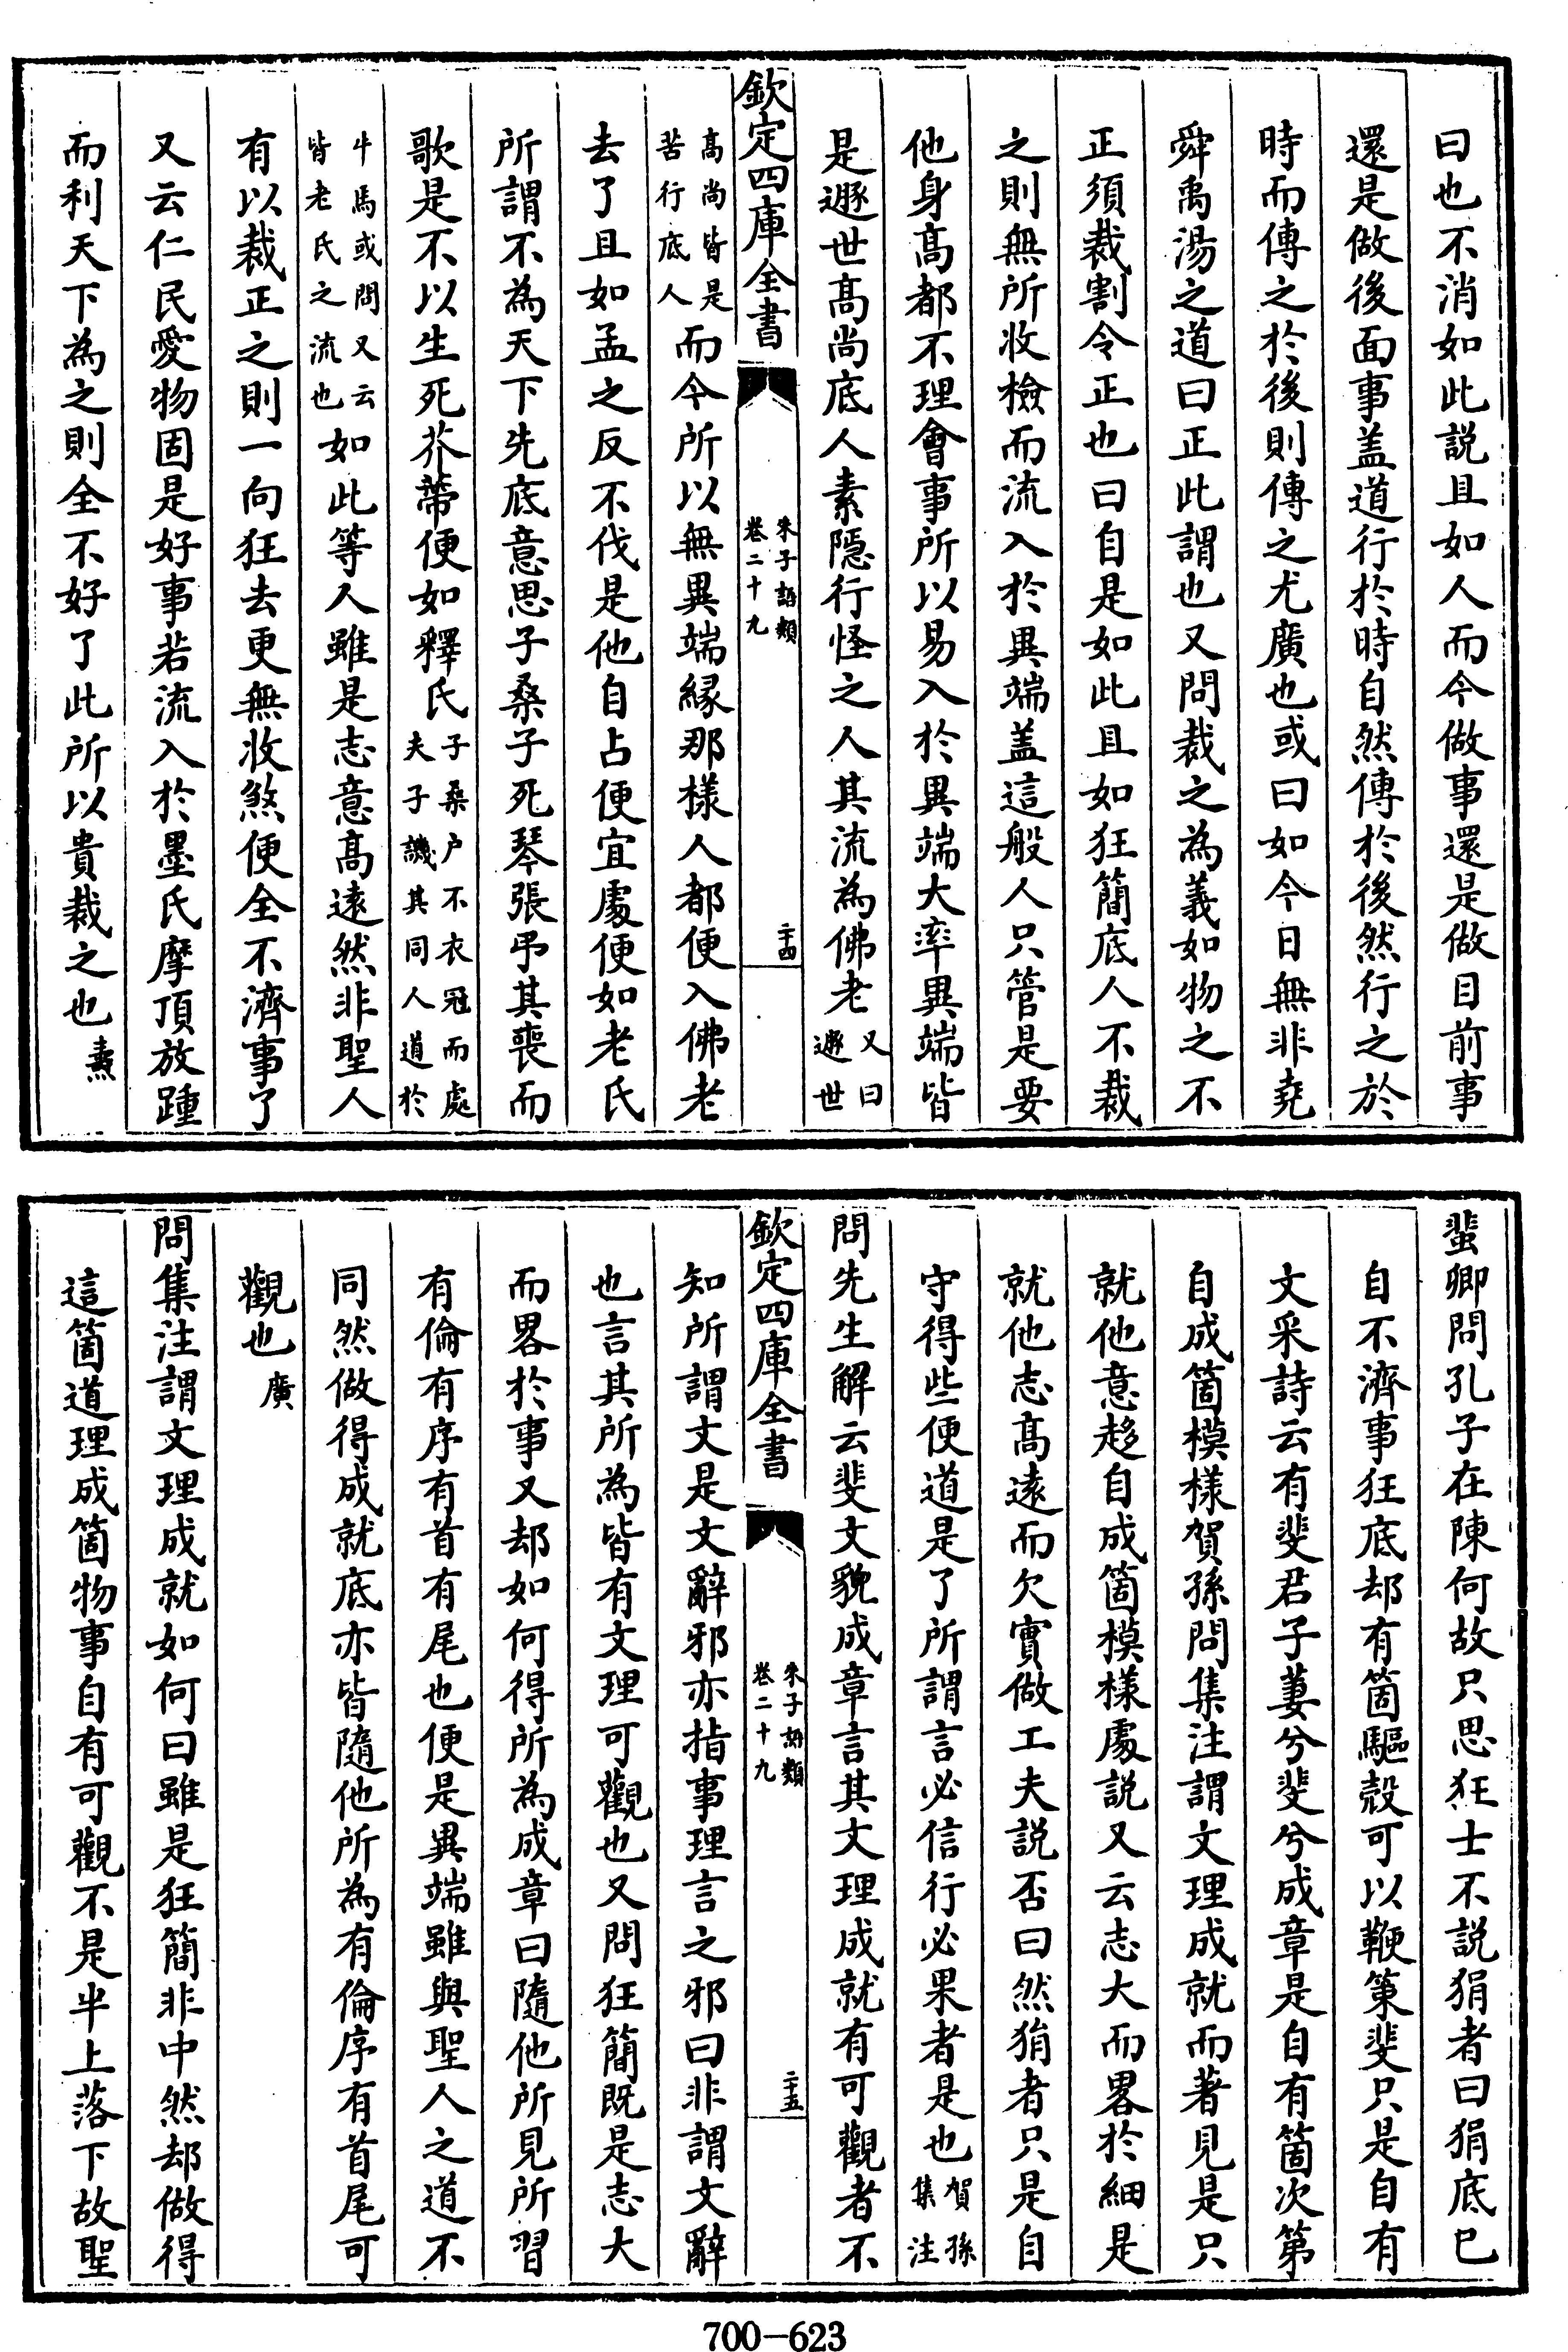 曰也不消如此説且如人而今做事還是做目前事
還是做後面事盖道行於時自然傳於後然行之於
時而傳之於後則傳之尤廣也或曰如今日無非堯
舜禹湯之道曰正此謂也又問裁之為義如物之不
正須裁割令正也曰自是如此且如狂簡底人不裁
之則無所收檢而流入於異端盖這般人只管是要
他身髙都不理會事所以易入於異端大率異端皆
是遯世髙尚底人素隱行怪之人其流為佛老又曰遯世
欽定四庫全書
朱子語類
卷二十九
二十四
髙尚皆是苦行底人而今所以無異端縁那様人都便入佛老
去了且如孟之反不伐是他自占便宜處便如老氏
所謂不為天下先底意思子桑子死琴張弔其喪而
歌是不以生死芥蔕便如釋氏子桑户不衣冠而處夫子譏其同人道於
牛馬或問又云皆老氏之流也如此等人雖是志意髙遠然非聖人
有以裁正之則一向狂去更無收煞便全不濟事了
又云仁民愛物固是好事若流入於墨氏摩頂放踵
而利天下為之則全不好了此所以貴裁之也燾
蜚卿問孔子在陳何故只思狂士不説狷者曰狷底已
自不濟事狂底却有箇驅殻可以鞭策斐只是自有
文采詩云有斐君子萋兮斐兮成章是自有箇次第
自成箇模様賀孫問集注謂文理成就而著見是只
就他意趍自成箇模様處説又云志大而畧於細是
就他志髙遠而欠實做工夫説否曰然狷者只是自
守得些便道是了所謂言必信行必果者是也賀孫集注
問先生解云斐文貌成章言其文理成就有可觀者不
欽定四庫全書
朱子語類
卷二十九
二十五
知所謂文是文辭邪亦指事理言之邪曰非謂文辭
也言其所為皆有文理可觀也又問狂簡既是志大
而畧於事又却如何得所為成章曰隨他所見所習
有倫有序有首有尾也便是異端雖與聖人之道不
同然做得成就底亦皆隨他所為有倫序有首尾可
觀也廣
問集注謂文理成就如何曰雖是狂簡非中然却做得
這箇道理成箇物事自有可觀不是半上落下故聖
700-623